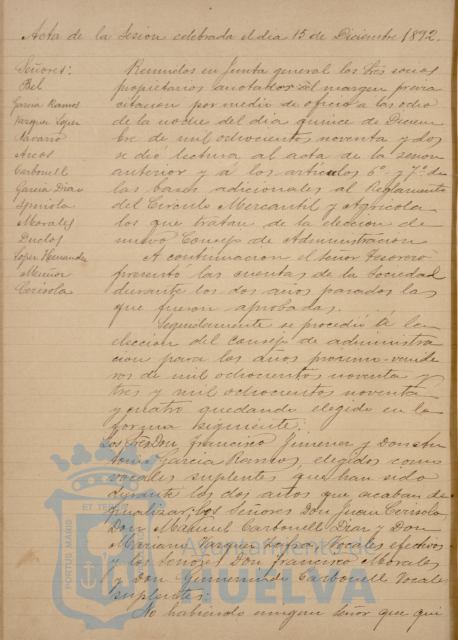 Acta de la Sesion celebrada el dia 15 de Diciembre 1892.
Señores:
Bel
Garcia Ramos
Vazquez Lopez
Navarro
Arcos
Carbonell
Garcia Diaz
Morales
Duclos
Lopez Hernandez
Muñoz
Cerisola
Reunidos en Junta general los Sres socios
propietarios anotados al margen previa
citacion por medio de oficio a las ocho
de la noche del dia quince de Diciem
bre de mil ochocientos noventa y dos
se dio lectura al acta de la sesion
anterior y á los artículos 6º y 7º de
las bases adicionales al Reglamento
del Circulo Mercantil y Agricola
los que tratan de la eleccion de
nuevo Consejo de Administracion
A continuacion el Señor Tesorero
presentó las cuentas de la Sociedad
durante los dos años pasados las
que fueron aprobadas.
Seguidamente se procedió á la
eleccion del consejo de administra
cion para los años proximo-venide
ros de mil ochocientos noventa y
tres y mil ochocientos noventa
y cuatro quedando elegido en la
forma siguiente:
Los Sres Don Francisco Jimenez y Don An
tonio Garcia Ramos, elegidos como
vocales suplentes que han sido
durante los dos años que acaban de
finalizar; los Señores Don Juan Cerisola
Don Manuel Carbonell Diaz y Don
Mariano Vazquez Lopez Vocales efectivos
y los Señores Don Francisco Morales
y Don Carbonell Vocales
suplentes:
No habiendo ningun señor que qui
ET TERRAE
PORTUS MARIS
Ayuntamiento de
HUELVA